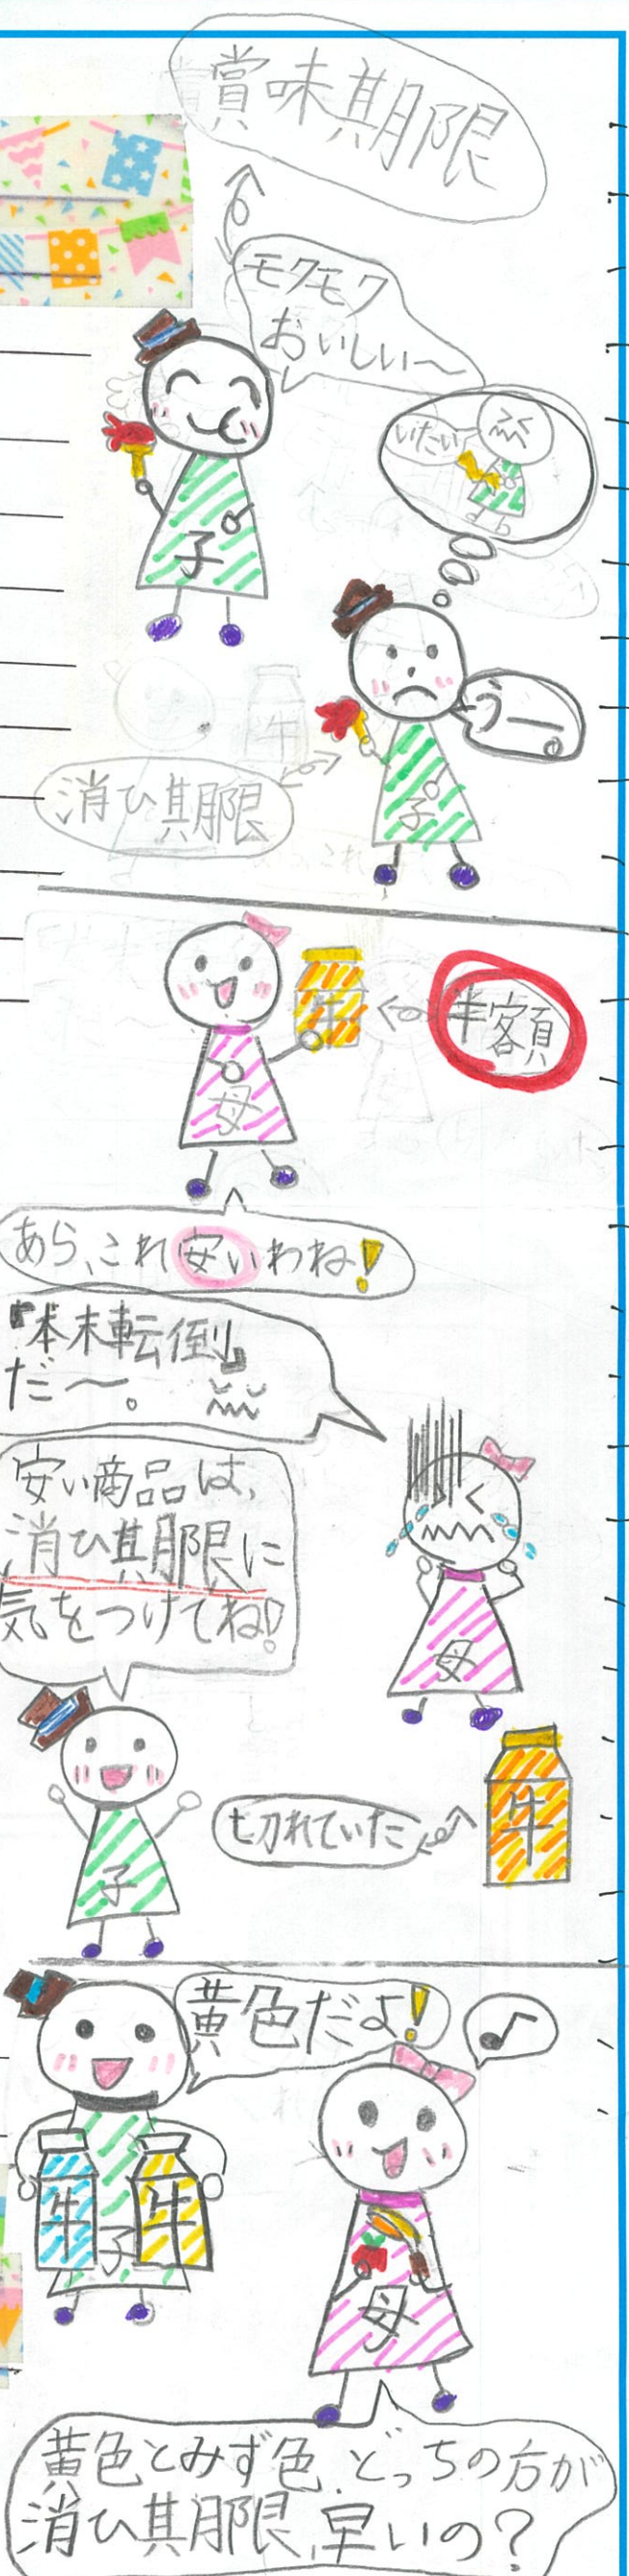 賞味期限
モグモグ
おいしい〜
いたい
子
うー。
子
消ひ期限
牛
半額
母
あら、これ安いわね!
『本末転倒』
だ〜。
安い商品は、
消ひ期限に
気をつけてね!
母
子
切れていた
牛
黄色だよ!
牛
子
牛
母
黄色とみず色、どっちの方が
消ひ期限、早いの?